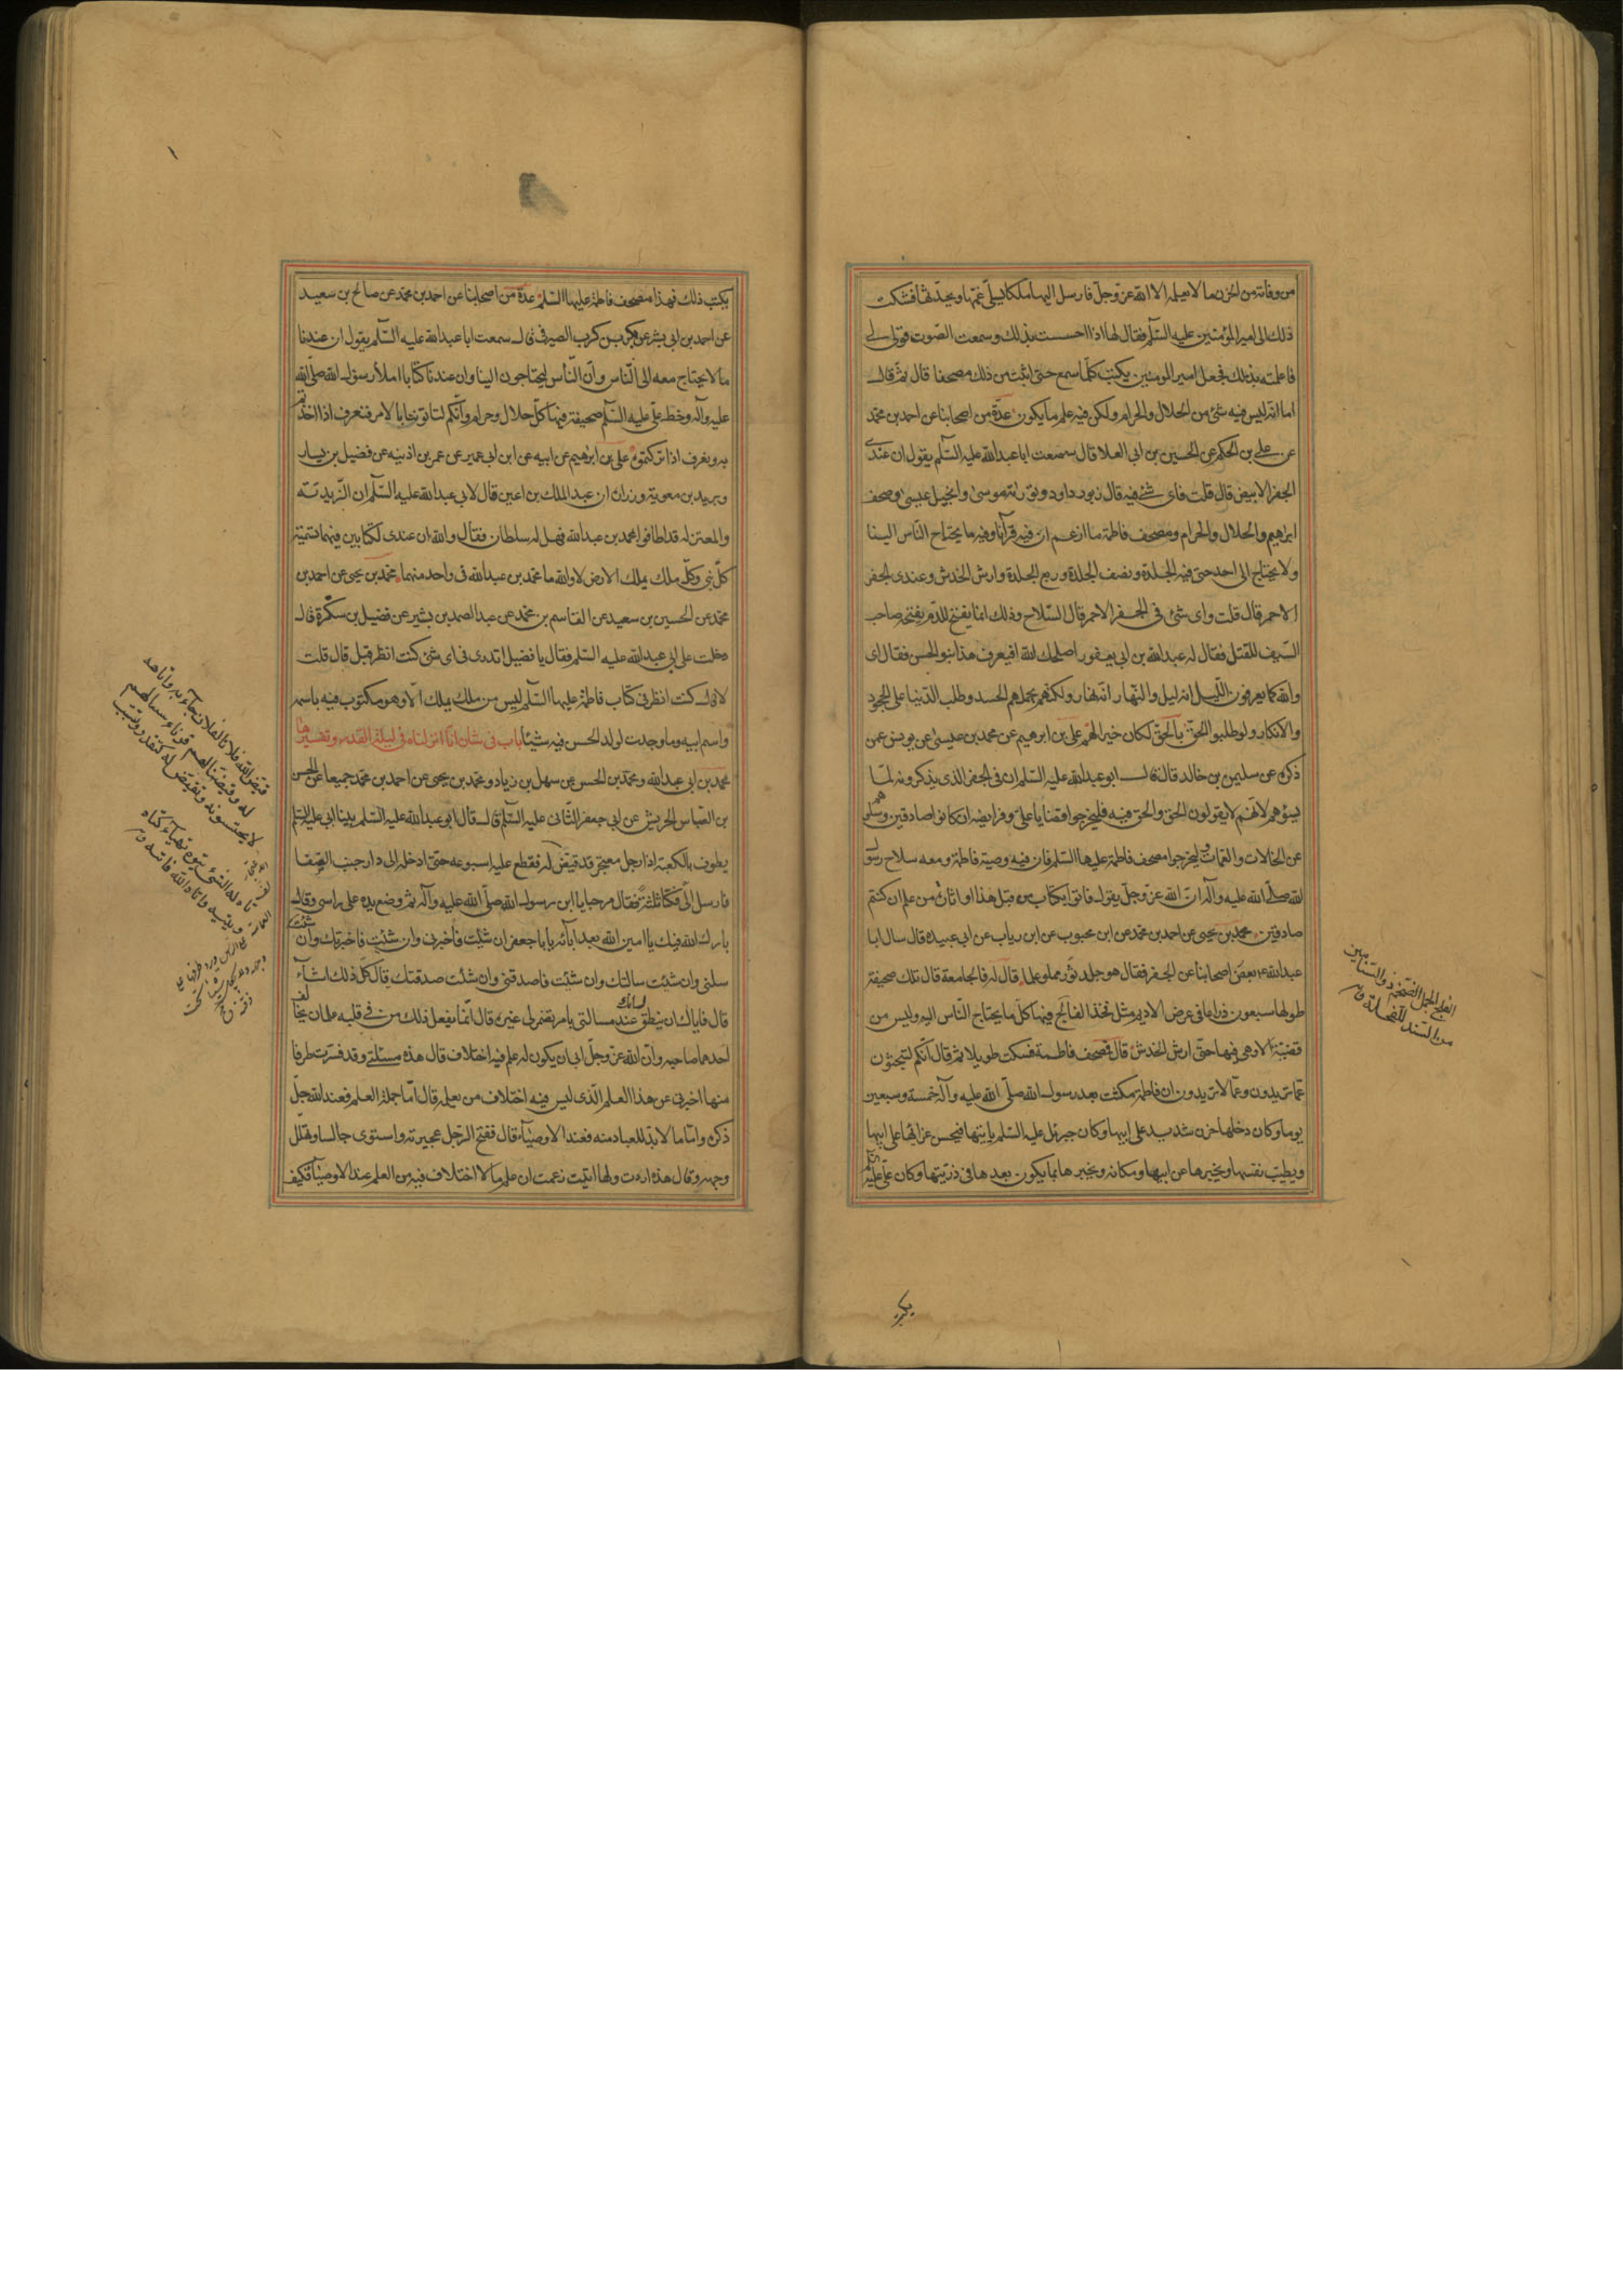 من وفاته من الحزن ما لا يعلمه الا الله عز وجل فارسل اليها ملكا يسلي غمها ويحدثها فشكت
ذلك الى امير المؤمنين عليه السلم فقال لها اذا احسست بذلك وسمعت الصوت قولى لي
فاعلمته بذلك فجعل امير المومنين يكتب كلما سمع حتى اثبت من ذلك مصحفا قال ثم قال
اما انه ليس فيه شئ من الحلال والحرام ولكن فيه علم ما يكون عدة من اصحابنا عن احمد بن محمد
عن علي بن الحكم عن الحسين بن ابى العلا قال سمعت ابا عبد الله عليه السلم يقول ان عندى
الجفر الابيض قال قلت فاى شئ فيه قال زبور داود وتورية موسى وانجيل عيسى وصحف
ابراهيم والحلال والحرام ومصحف فاطمة ما ازعم ان فيه قرآنا وفيه ما يحتاج الناس الينا
ولا يحتاج الى احد حتى فيه الجلدة ونصف الجلدة وربع الجلدة وارش الخدش وعندى الجفر
الاحمر قال قلت واى شئ فى الجفر الاحمر قال السلاح وذلك انما يفتح للدم يفتحه صاحب
السيف للقتل فقال له عبد الله بن ابى يعفور اصلحك الله افيعرف هذا بنو الحسن فقال اى
والله كما يعرفون الليل انه ليل والنهار انه نهار ولكنهم يحملهم الحسد وطلب الدنيا على الجحود
والانكار ولو طلبوا الحق بالحق لكان خيرا لهم على بن ابرهيم عن محمد بن عيسى عن يونس عمن
ذكره عن سليمن بن خالد قال قال ابو عبد الله عليه السلم ان فى الجفر الذى يذكرونه لما
يسؤهم لانهم لا يقولون الحق والحق فيه فليخرجوا قضايا على وفرايضه ان كانوا صادقين وسلوهم
عن الخالات والعمات وليخرجوا مصحف فاطمة عليها السلم فان فيه وصية فاطمة ومعه سلاح رسول
الله صلى الله عليه وآله ان الله عز وجل يقول فاتوا بكتاب من قبل هذا او اثارة من علم ان كنتم
صادقين محمد بن يحيى عن احمد بن محمد عن ابن محبوب عن ابن رياب عن ابى عبيدة قال سال ابا
عبد الله ع بعض اصحابنا عن الجفر فقال هو جلد ثور مملو علما قال له فالجامعة قال تلك صحيفة
طولها سبعون ذراعا فى عرض الاديم مثل فخذ الفالج فيها كل ما يحتاج الناس اليه وليس من
قضية الا وهى فيها حتى ارش الخدش قال فمصحف فاطمة فسكت طويلا ثم قال انكم لتبحثون
عما تريدون وعما لا تريدون ان فاطمة مكثت بعد رسول الله صلى الله عليه وآله خمسة وسبعين
يوما وكان دخلها حزن شديد على ابيها وكان جبرئل عليه السلم ياتيها فيحسن عزائها على ابيها
ويطيب نفسها ويخبرها عن ابيها ومكانه ويخبرها بما يكون بعدها فى ذريتها وكان على عليه السلم
الفالج الجمل الضخم ذو السنامين
من السند للفحلة
يكتب
يكتب ذلك فهذا مصحف فاطمة عليها السلم عدة من اصحابنا عن احمد بن محمد عن صالح بن سعيد
عن احمد بن ابى بشر عن بكر بن كرب الصيرفى قال سمعت ابا عبد الله عليه السلم يقول ان عندنا
ما لا يحتاج معه الى الناس وان الناس ليحتاجون الينا وان عندنا كتابا املأ رسول الله صلى الله
عليه وآله وخط على عليه السلم صحيفة فيها كل حلال وحرام وانكم لتاتونا بالامر فنعرف اذا اخذتم
به ونعرف اذا تركتموه على بن ابرهيم عن ابيه عن ابن ابى عمير عن عمر بن اذينه عن فضيل بن يسار
وبريد بن معوية وزرارة ان عبد الملك بن اعين قال لابى عبد الله عليه السلم ان الزيدية
والمعتزله قد اطافوا بمحمد بن عبد الله فهل له سلطان فقال والله ان عندى لكتابين فيهما تسمية
كل نبى وكل ملك يملك الارض لا والله ما محمد بن عبد الله فى واحد منهما محمد بن يحيى عن احمد بن
محمد عن الحسين بن سعيد عن القاسم بن محمد عن عبد الصمد بن بشير عن فضيل بن سكرة قال
دخلت على ابى عبد الله عليه السلم فقال يا فضيل اتدرى فى اى شئ كنت انظر قبل قال قلت
لا قال كنت انظر فى كتاب فاطمة عليها السلم ليس من ملك يملك الا وهو مكتوب فيه باسمه
واسم ابيه وما وجدت لولد الحسن فيه شيئا باب فى شان انا انزلناه فى ليلة القدر وتفسيرها
محمد بن ابى عبد الله ومحمد بن الحسن عن سهل بن زياد ومحمد بن يحيى عن احمد بن محمد جميعا عن الحسن
بن العباس الحريش عن ابى جعفر الثانى عليه السلم قال قال ابو عبد الله عليه السلم بينا ابى عليه السلم
يطوف بالكعبة اذا رجل معتجر قد قيض له فقطع عليه اسبوعه حتى ادخله الى دار جنب الصفا
فارسل الى فكنا ثلثة فقال مرحبا يا ابن رسول الله صلى الله عليه وآله ثم وضع يده على راسى وقال
بارك الله فيك يا امين الله بعد آبائه يا با جعفر ان شئت فاخبرنى وان شئت فاخبرتك وان شئت
سلنى وان شئت سالتك وان شئت فاصدقنى وان شئت صدقتك قال كل ذلك اشاء
قال فاياك ان ينطق لسانك عند مسالتى بامر تضمر لى غيره قال انما يفعل ذلك من فى قلبه علمان يخالف
احدهما صاحبه وان الله عز وجل ابى ان يكون له علم فيه اختلاف قال هذه مسئلتى وقد فسرت طرفا
منها اخبرنى عن هذا العلم الذى ليس فيه اختلاف من يعلمه قال اما جملة العلم فعند الله جل
ذكره واما ما لا بد للعباد منه فعند الاوصياء قال ففتح الرجل عجيرته واستوى جالسا وتهلل
وجهه وقال هذه اردت ولها اتيت زعمت ان علم ما لا اختلاف فيه من العلم عند الاوصياء فكيف
قيض الله فلانا لفلان جاء به واتاحه
له وقيضنا لهم قرناء سببنا لهم
من حيث لا يحتسبونه وتقيض له تقدر وتسبب